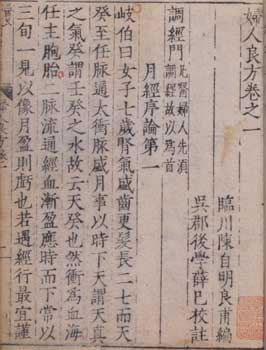 婦人良方卷之一
臨川陳自明良甫編
吳郡後學薛巳校註
調經門凡醫婦人先須調經故以爲首
月經序論第一
岐伯曰女子七歲腎氣盛齒更髮長二七而天
癸至任脈通太衝脈盛月事以時下天謂天真
之氣癸謂壬癸之水故云天癸也然衝爲血海
任主胞胎二脈流通經血漸盈應時而下常以
三旬一見以像月盈則虧也若遇經行最宜謹